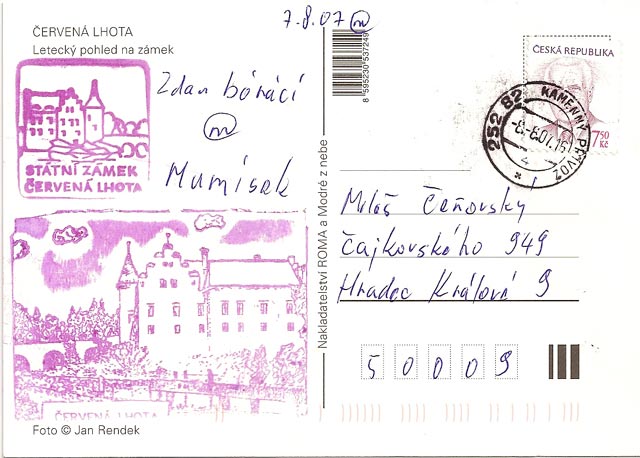 ČERVENÁ LHOTA
Letecký pohled na zámek
7.8.07 m
STÁTNÍ ZÁMEK
ČERVENÁ LHOTA
Zdar bónáci
m
Mumísek
ČERVENÁ LHOTA
Foto © Jan Rendek
Nakladatelství ROMA a Modré z nebe
8 595230 537249
ČESKÁ REPUBLIKA
7,50
Kč
252 82 KAMENNÝ PŘÍVOZ
-8.-8.07.16
4
Miloš Čeňovský
Čajkovského 949
Hradec Králové 9
50009